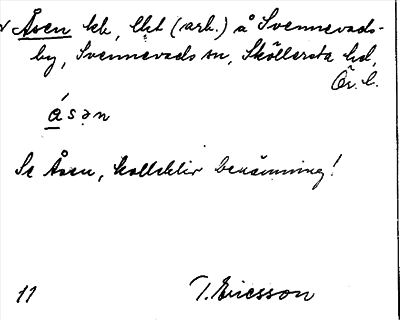 v Åsen hh, lht (arb.) å Svennevads-
by, Svennevads sn, Sköllersta hd,
Ör. l.
ásən
Se Åsen, kollektiv benämning!
11 T. Ericsson